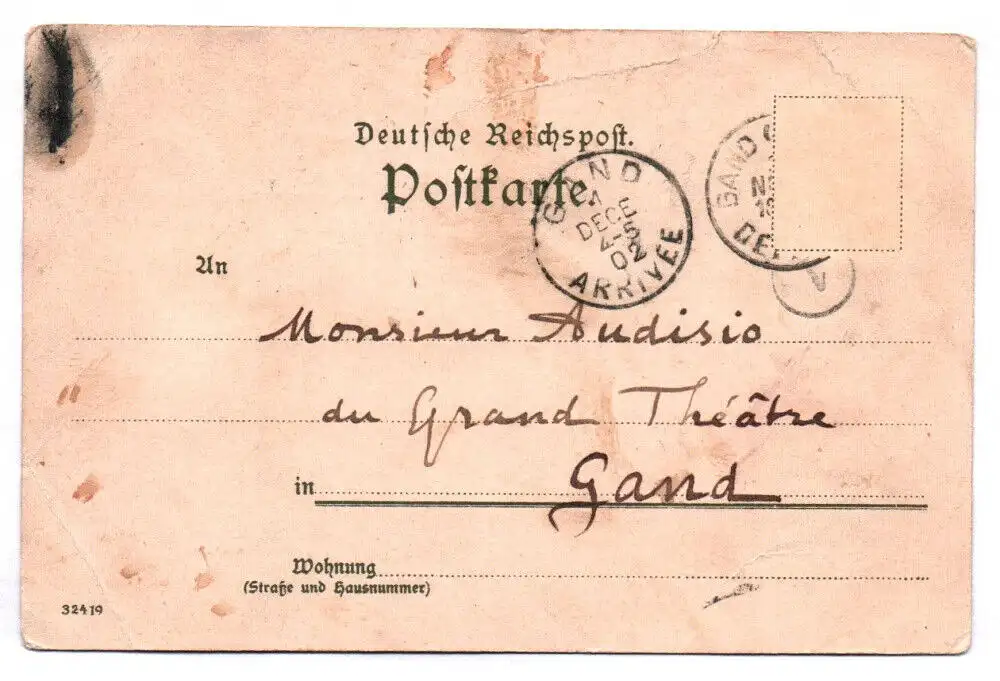 Deutsche Reichspost.
Postkarte.
GAND
DECE
4-5
02
ARRIVÉE
GAND
An
V
Monsieur Audisio
du Grand Théâtre
in Gand
Wohnung
(Straße und Hausnummer)
32419